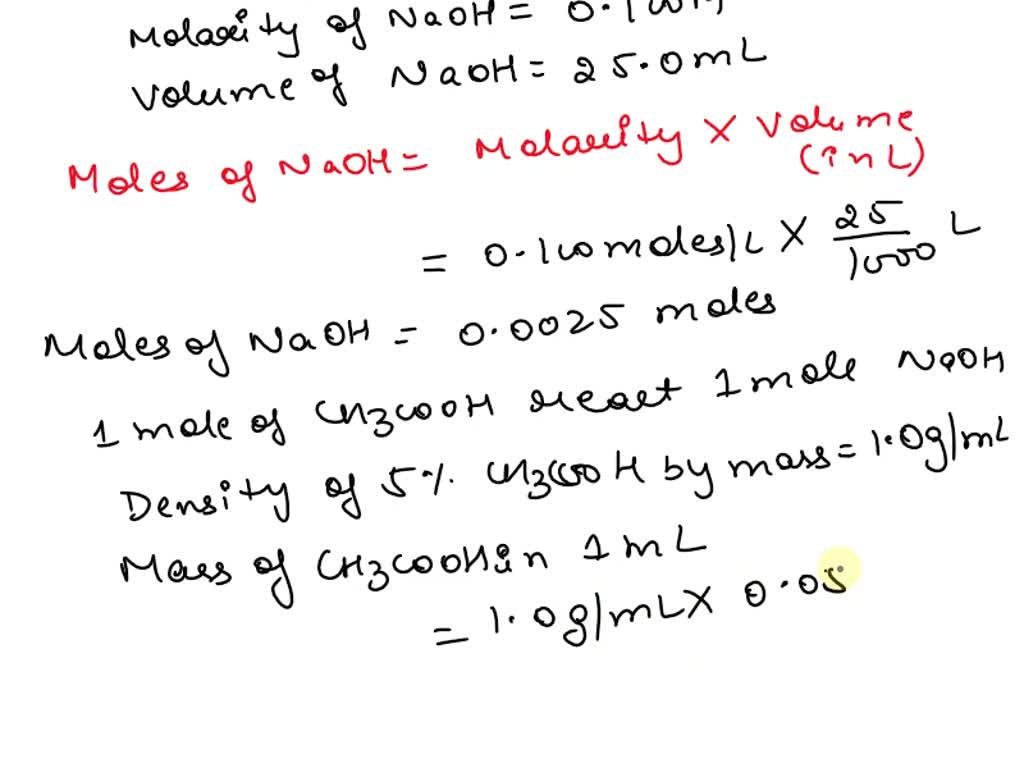 Molarity of NaOH = 0.100M
Volume of NaOH = 25.0 mL
Moles of NaOH = Molarity × Volume (in L)
= 0.100 moles/L × 25/1000 L
Moles of NaOH = 0.0025 moles
1 mole of CH3COOH react 1 mole NaOH
Density of 5% CH3COOH by mass = 1.0g/mL
Mass of CH3COOH in 1 mL
= 1.0g/mL × 0.05